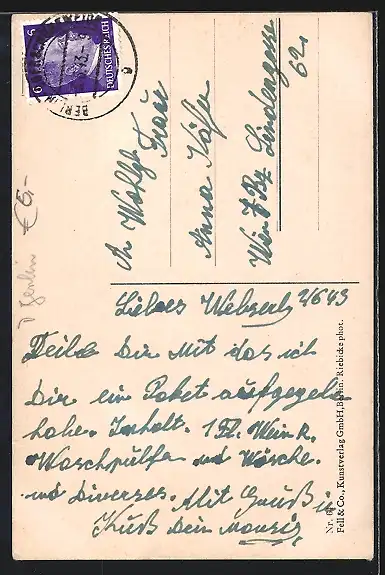 An Wohlg. Frau
Anna Käfer
Wien 7. Bz. Lindengasse
62
Liebes Weberl 2/6 43
Teile Dir Mit das ich
Dir ein Paket aufgegeben
habe. Inhalt. 1 Fl. Wein
Waschpulfer und Wäsche.
und Diverses. Mit Gruß u
Kuß Dein
DEUTSCHES REICH
6
BERLIN
€ 5,-
Nr.
Fell & Co., Kunstverlag GmbH, Berlin. Riebicke phot.